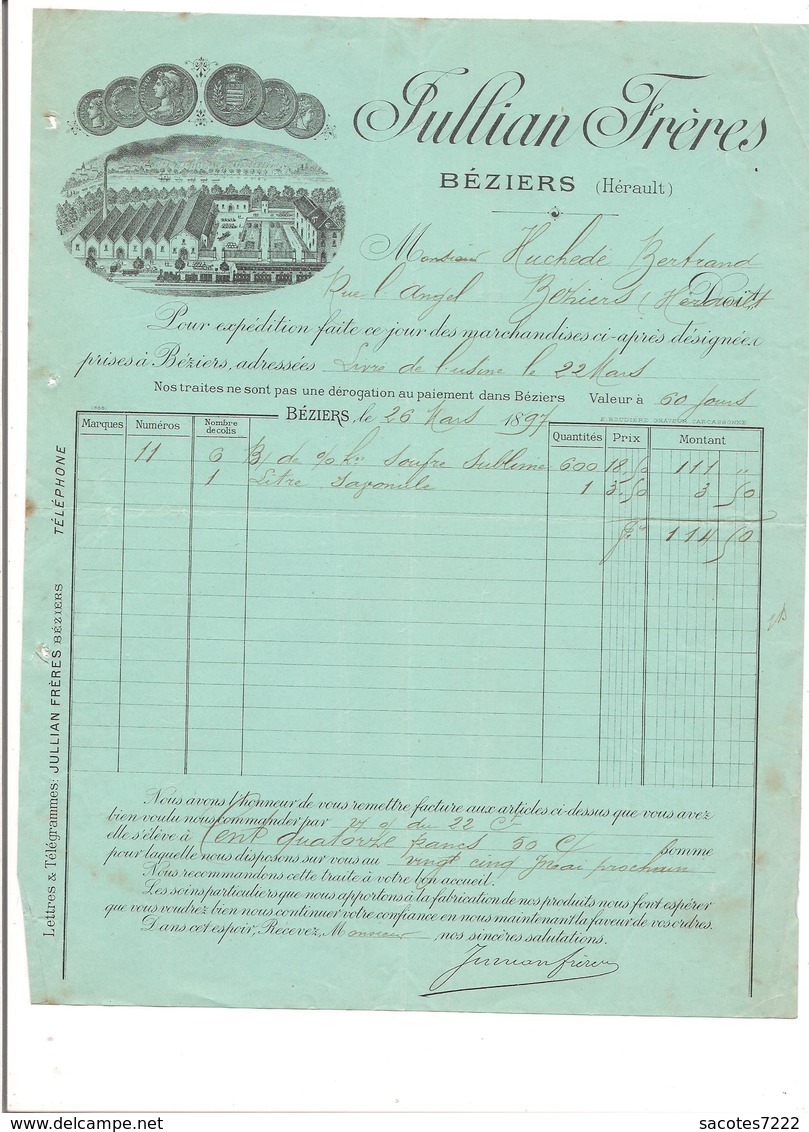 Jullian Frères
BÉZIERS (Hérault)
Monsieur Huchedé Bertrand
Rue l'Angel Béziers (Hérault) Doit
Pour expédition faite ce jour des marchandises ci-après désignées
prises à Béziers, adressées Livré de l'usine le 22 Mars
Nos traites ne sont pas une dérogation au paiement dans Béziers Valeur à 60 jours
E. ROUDIERE GRAVEUR CARCASSONNE
BÉZIERS, le 26 Mars 1897
Marques Numéros Nombre de colis Quantités Prix Montant
11 6 B/ de % k. Soufre Sublimé 600 18.50 111 "
1 Litre 1 3.50 3 50
114 50
TÉLÉPHONE
Lettres & Télégrammes: JULLIAN FRÈRES BÉZIERS
Nous avons l'honneur de vous remettre facture aux articles ci-dessus que vous avez
bien voulu nous commander par du 22 Ct
elle s'élève à Cent quatorze francs 50 C/ somme
pour laquelle nous disposons sur vous au vingt cinq Mai prochain
Nous recommandons cette traite à votre bon accueil.
Les soins particuliers que nous apportons à la fabrication de nos produits nous font espérer
que vous voudrez bien nous continuer votre confiance en nous maintenant la faveur de vos ordres.
Dans cet espoir, Recevez, Monsieur, nos sincères salutations.
Jullian frères
delcampe.net
sacotes7222